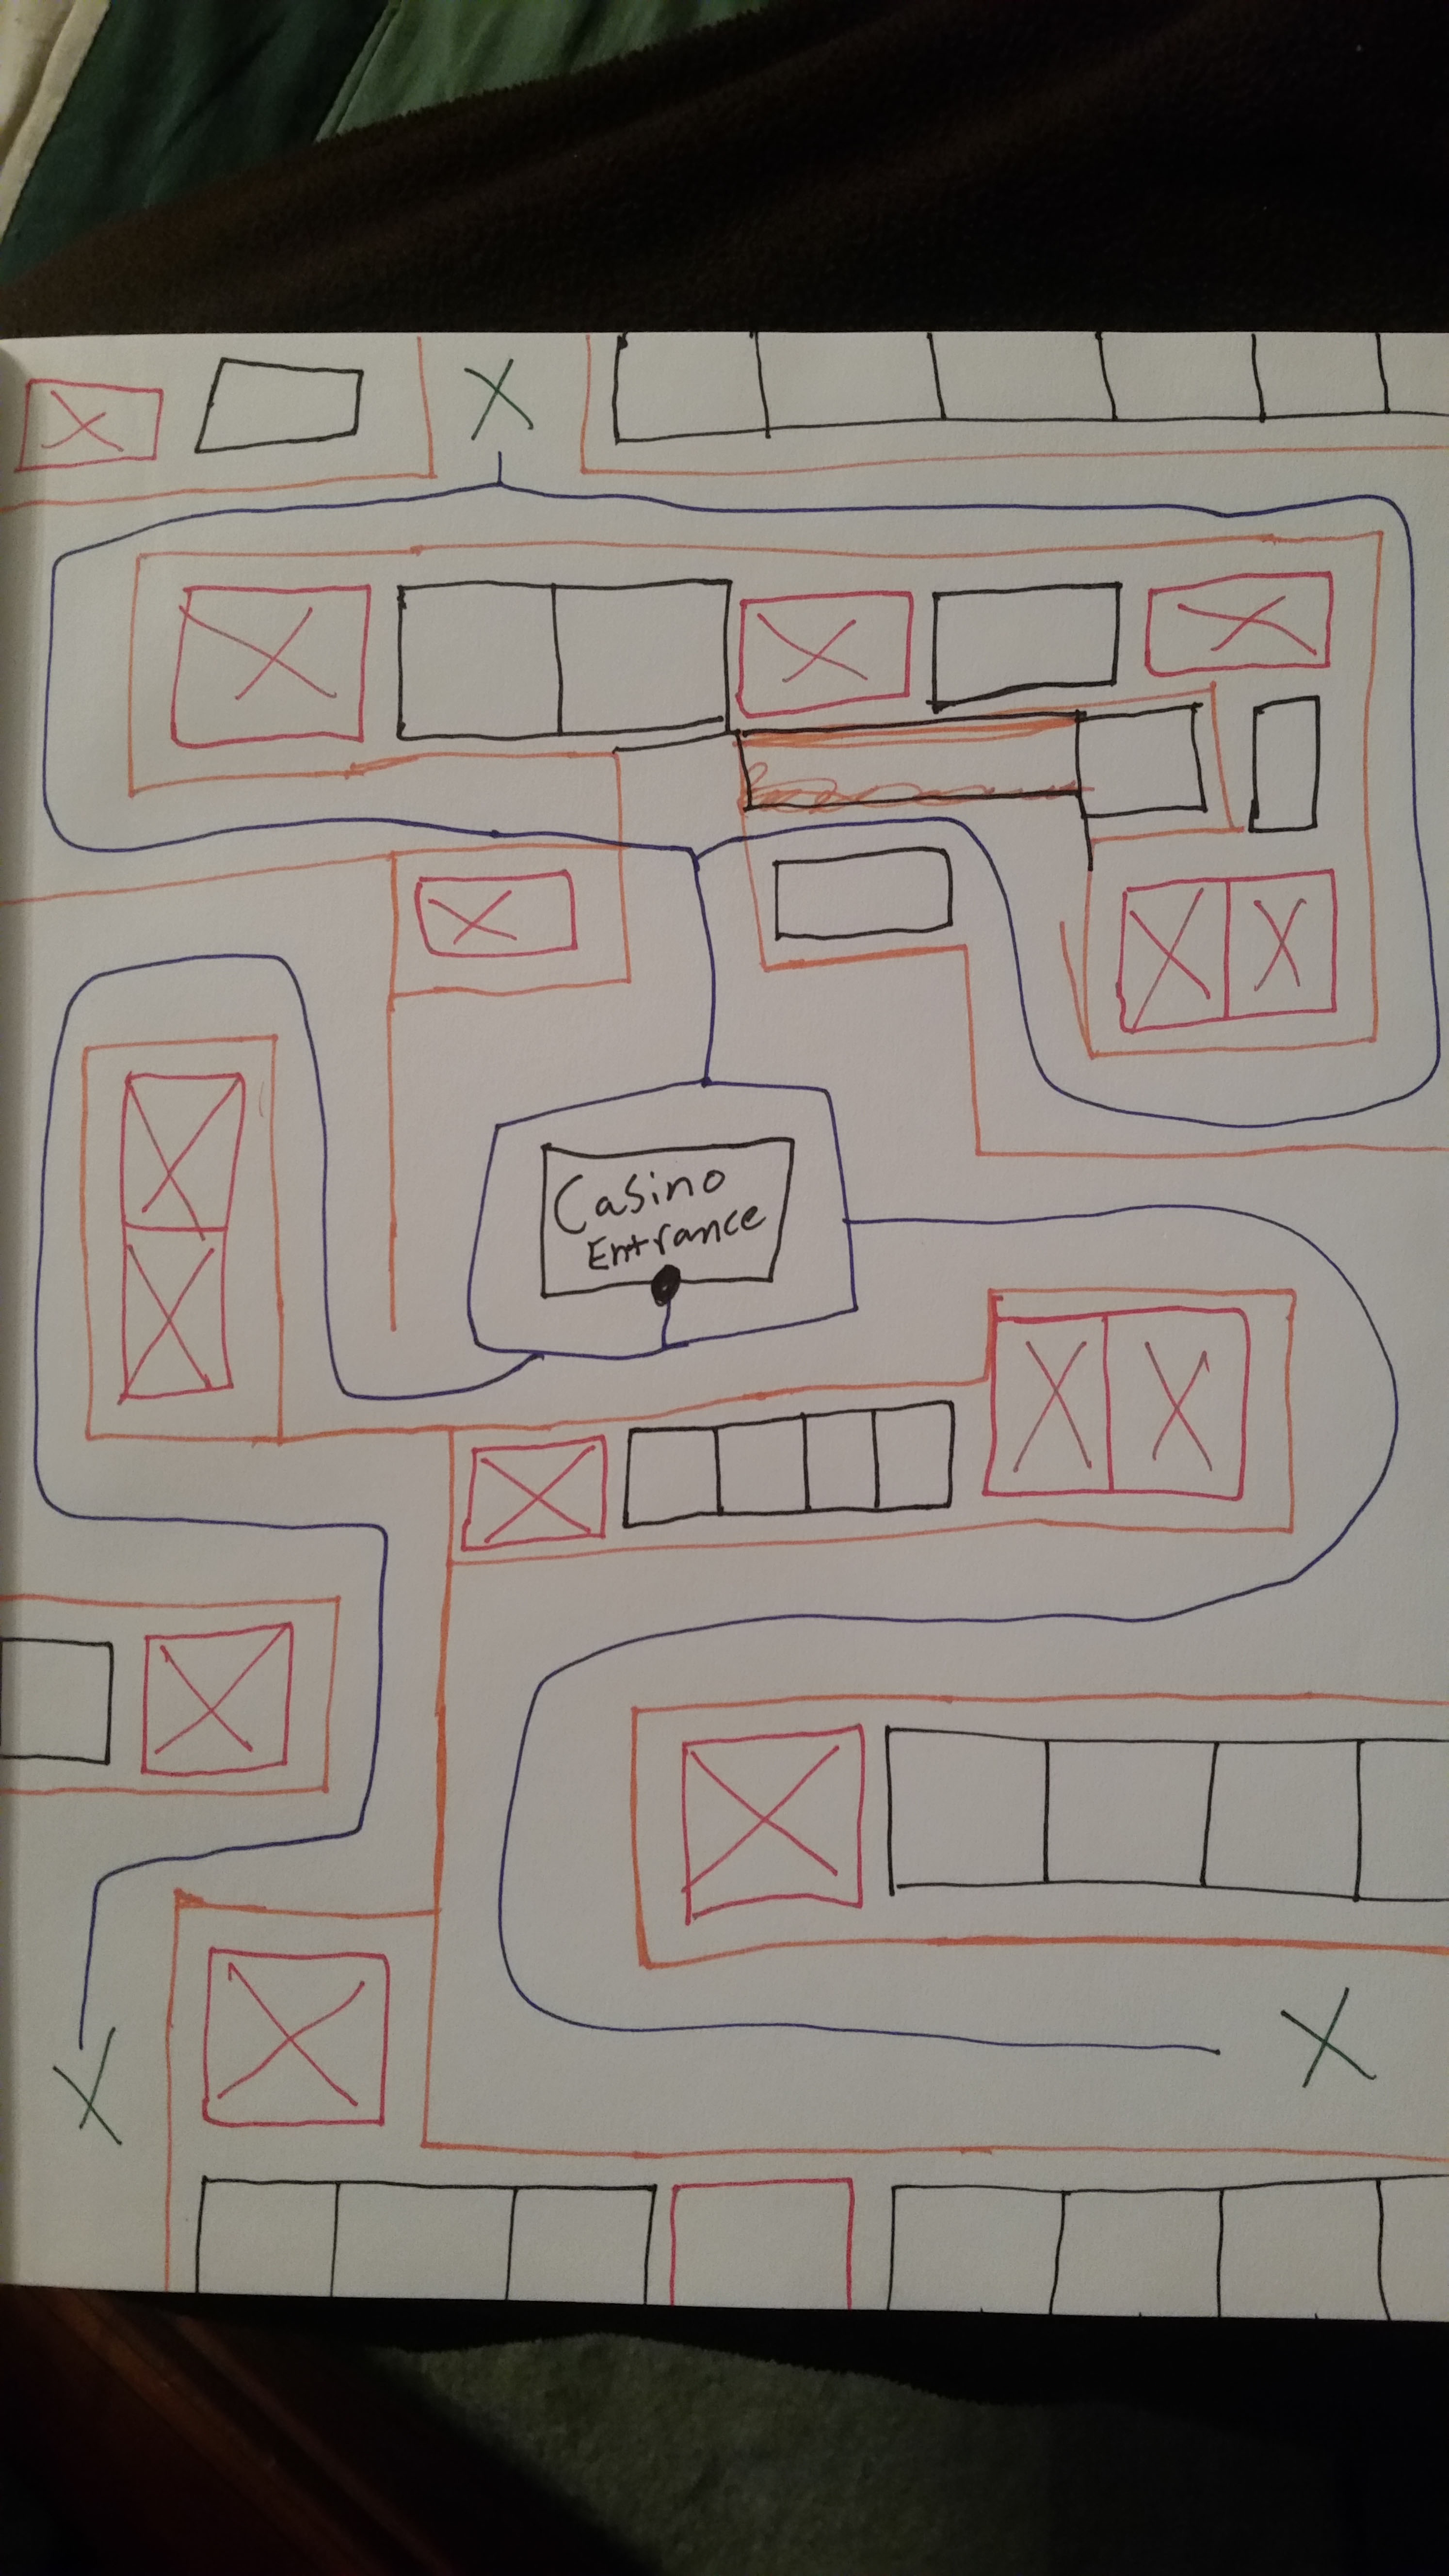 Casino
Entrance